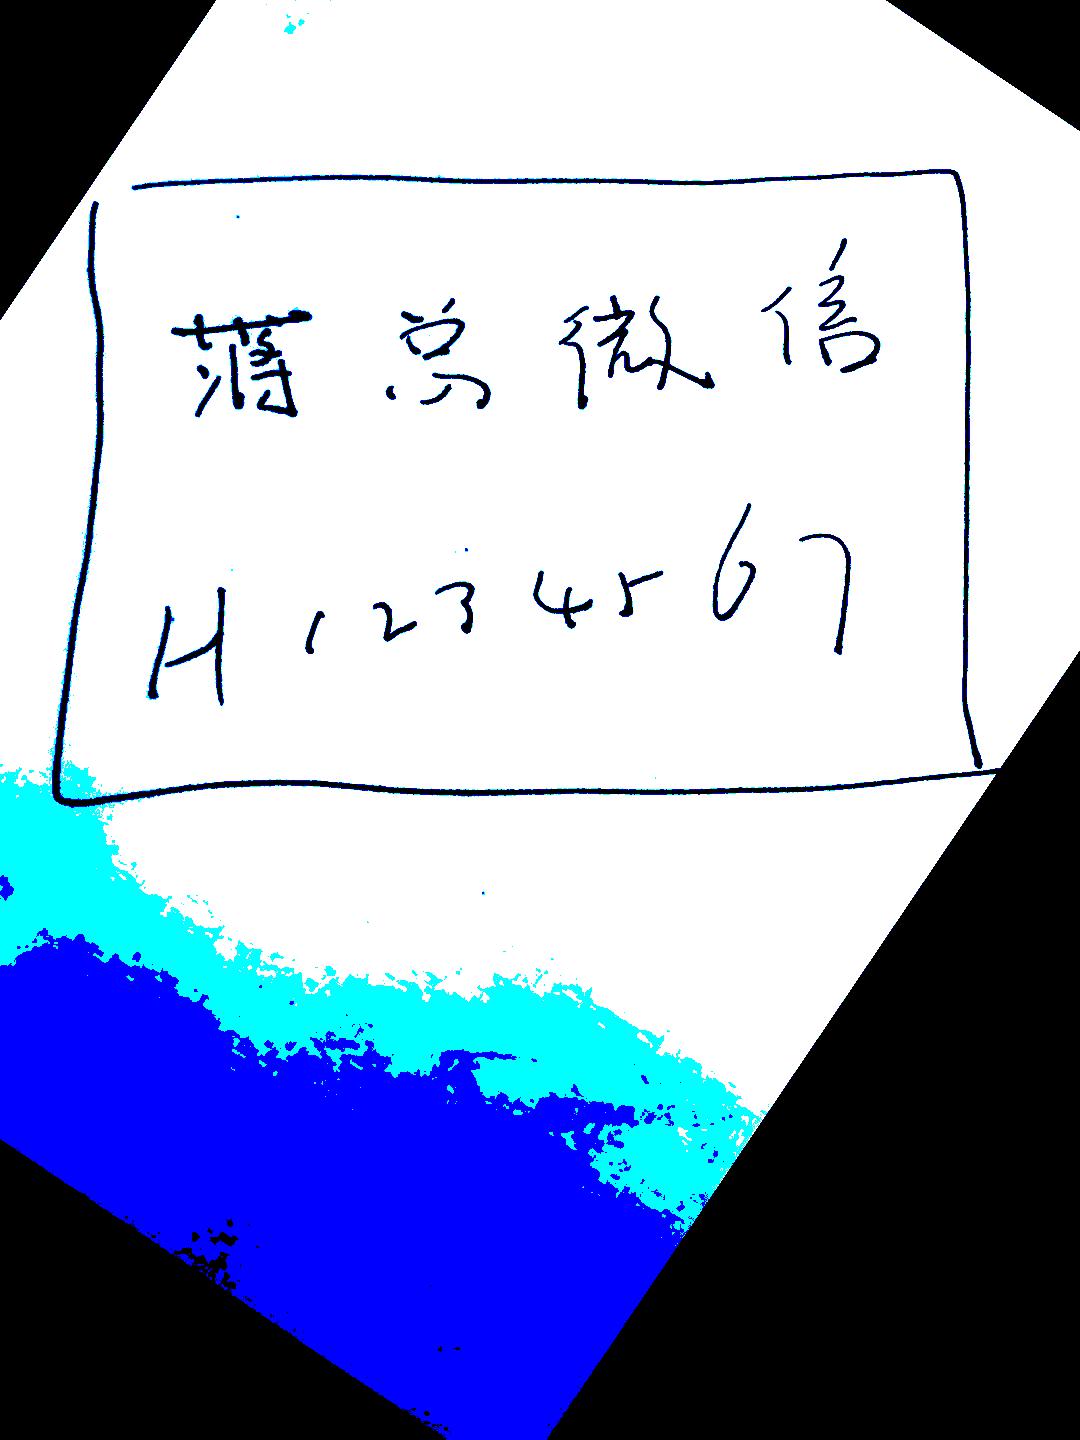 蒋总微信
H1234567